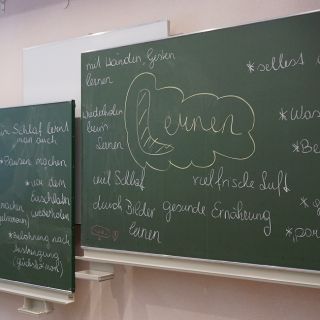 im Schlaf lernt
man auch
* Pausen machen
* vor dem
Einschlafen
wiederholen
machen
* Belohnung nach
Anstrengung
mit Händen, Gesten
lernen
Wiederholen
beim
Lernen
Lernen
viel Schlaf
viel frische Luft
durch Bilder
lernen
gesunde Ernährung
* selbst
* Was
* Be